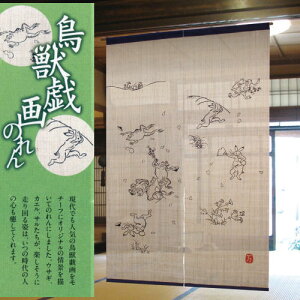 鳥獣戯画
のれん
現代でも人気の鳥獣戯画をモ
チーフにオリジナルの情景を描
いてのれんにしました。ウサギ、
カエル、サルたちが、楽しそうに
走り回る姿は、いつの時代の人
の心も癒してくれます。